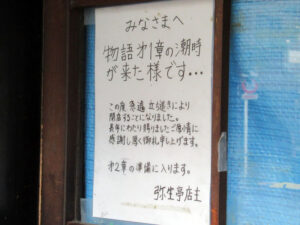 みなさまへ
物語オ1章の潮時
が来た様です…
この度 急遽 立ち退きにより
閉店することになりました。
長年にわたり賜りましたご厚情に
感謝し厚く御礼申し上げます。
オ2章の準備に入ります。
弥生亭店主